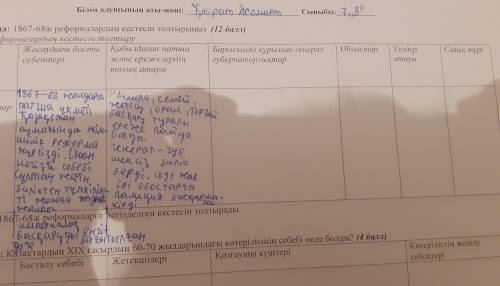 Білім алушының аты-жөні: Қайрат Жолорт Сыныбы: 7 "З"
на: 1867-68ж реформалардың кестесін толтырыңыз (12 балл)
еформалардың кестесін толтыру
Жасаудағы басты себептері
Қабылдаған патша және ережелердің толық атауы
Барысында құрылған генерал губернаторлықтар
Облыстар
Уездер атауы
Салық түрі
1867-68 жылдары
патша үкіметі
Қазақстан
аумағында әкім
шілік реформа
жүргізді. Оның
негізгі себебі
Сұлтан жерін
биліктен түпкілік-
ті жоюға және
империялық
басқаруды енгіз
уге бағытталған
"Ақмола, семей,
жетісу, орал, Торғай
басқару туралы
ереже пайда
болды
генерал-губ
шексіз билік
берді.
ірі обостарға
кірді
1867-68ж реформаларға негізделген кестесін толтырады.
: Қазақтардың XIX ғасырдың 60-20 жылдарындағы көтерілісінің себебі неде болды? (4 балл)
Басталу себебі
Жетекшілері
Қозғаушы күштері
Көтерілістің жеңілу себептері